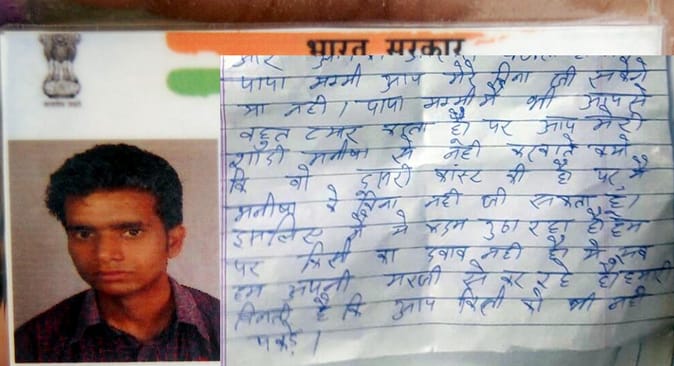 भारत सरकार
पापा मम्मी आप मेरे बिना जी सकेंगे
या नहीं। पापा मम्मी मैं भी आपसे
बहुत प्यार करता हूँ पर आप मेरी
शादी मनीषा से नही करवाते क्यो
कि वो दूसरी कास्ट की है पर मैं
मनीषा के बिना नही जी सकता हूँ।
इसलिए मैं ये कदम उठा रहा हूँ हम
पर किसी का दबाव नही है ये सब
हम अपनी मरजी से कर रहे है हमारी
विनती है कि आप किसी को भी नही
पकड़े।